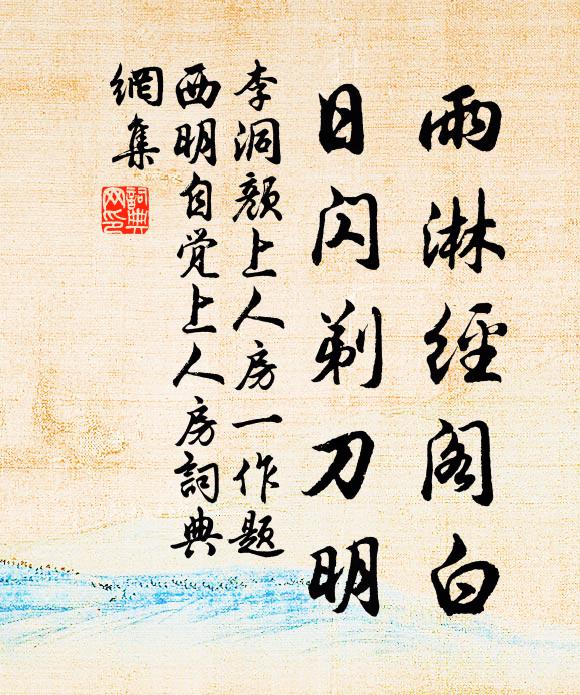 雨淋經阁白
日闪剃刀明
李洞颜上人房一作题
西明自觉上人房詞典
網集
詞典
网印